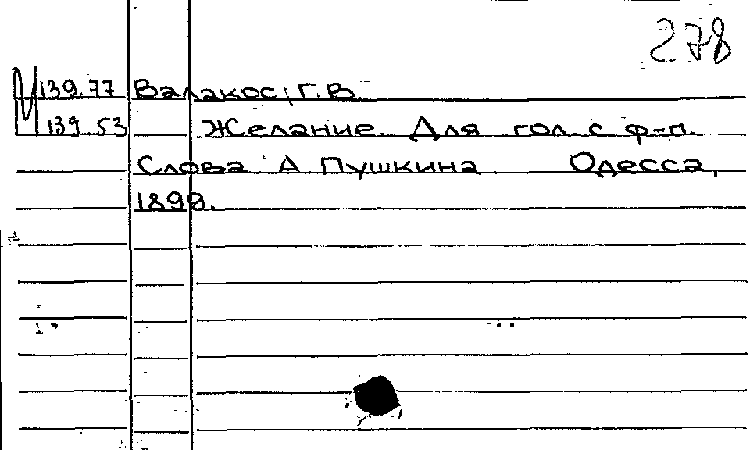 278
М 139.77 Валакос, Г.В.
139.53 Желание. Для гол. с ф-п.
Слова А Пушкина Одесса,
1899.